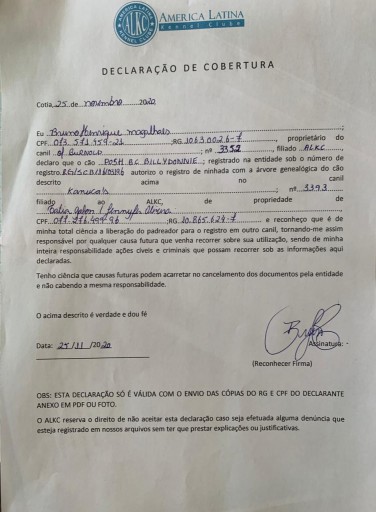 AMERICA LATINA
Kennel Clube
AMERICA LATINA
ALKC
KENNEL CLUBE
DECLARAÇÃO DE COBERTURA
Cotia, 25 de novembro 2020
Eu Bruno Henrique magalhaes
CPF. RG. 1063.0026-7, proprietário do
canil nº 3352, filiado ALKC,
declaro que o cão POSH BC BILLY DONNIE; registrado na entidade sob o número de
registro. autorizo o registro de ninhada com a árvore genealógica do cão
descrito acima no canil
nº 3393
filiado ao ALKC, de propriedade de
CPF. RG 10.865.624-7 e reconheço que é de
minha total ciência a liberação do padreador para o registro em outro canil, tornando-me assim
responsável por qualquer causa futura que venha recorrer sobre sua utilização, sendo de minha
inteira responsabilidade ações cíveis e criminais que possam recorrer sob as informações aqui
declaradas.
Tenho ciência que causas futuras podem acarretar no cancelamento dos documentos pela entidade
e não cabendo a mesma responsabilidade.
O acima descrito é verdade e dou fé
Data: 25/11/2020
Assinatura: -
(Reconhecer Firma)
OBS: ESTA DECLARAÇÃO SÓ É VÁLIDA COM O ENVIO DAS CÓPIAS DO RG E CPF DO DECLARANTE
ANEXO EM PDF OU FOTO.
O ALKC reserva o direito de não aceitar esta declaração caso seja efetuada alguma denúncia que
esteja registrado em nossos arquivos sem ter que prestar explicações ou justificativas.